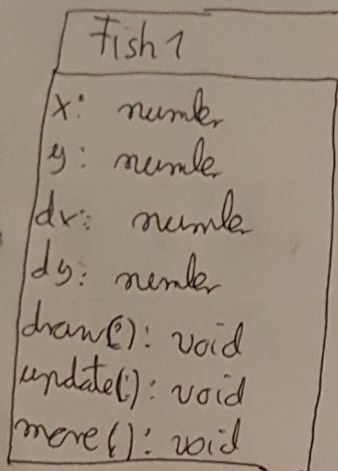 Fish1
x: number
y: number
dx: number
dy: number
draw(): void
update(): void
move(): void